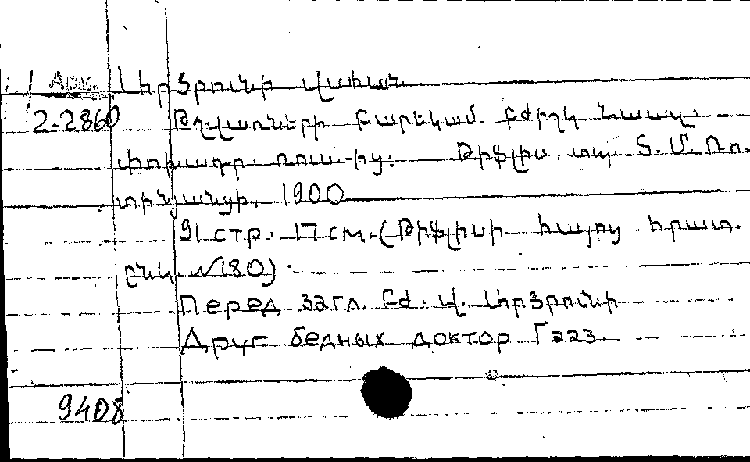 Арм. Արծրունի Վահան
2-2860 Թշվառների բարեկամ. բժիշկ Հաազ.
փոխադր. ռուս-ից. Թիֆլիս, տպ. Տ. Մ. Ռո-
տինյանցի, 1900
91 стр. 17 см. (Թիֆլիսի հայոց հրատ.
ընկ. №180)
Перед загл. Բժ. Վ. Արծրունի
Друг бедных доктор Гааз.
9408